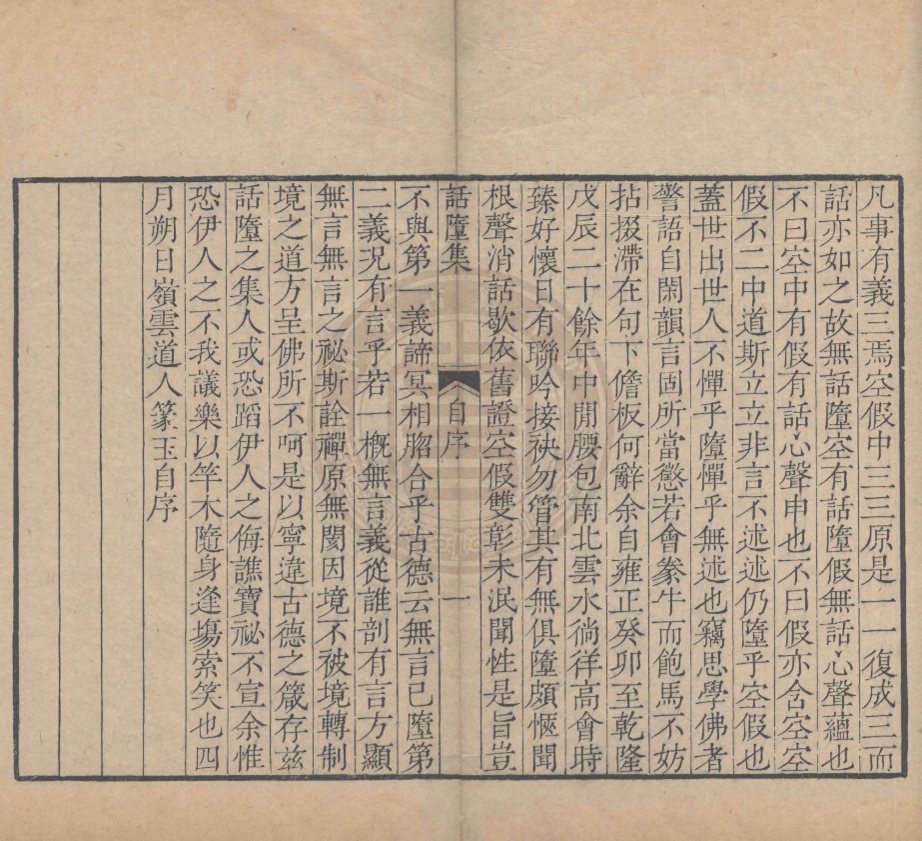 凡事有義三焉空假中三三原是一一復成三而
話亦如之故無話墮空有話墮假無話心聲蘊也
不曰空中有假有話心聲申也不曰假亦含空空
假不二中道斯立立非言不述述仍墮乎空假也
蓋世出世人不憚乎墮憚乎無述也竊思學佛者
警語自閑韻言固所當懲若會豢牛而飽馬不妨
拈掇滯在句下儋板何辭余自雍正癸卯至乾隆
戊辰二十餘年中閒腰包南北雲水徜徉高會時
臻好懷日有聯吟接袂勿管其有無俱墮頗愜聞
根聲消話歇依舊證空假雙彰未泯聞性是旨豈
話墮集 自序 一
不與第一義諦冥相脗合乎古德云無言已墮第
二義況有言乎若一概無言義從誰剖有言方顯
無言無言之祕斯詮禪原無閡因境不被境轉制
境之道方呈佛所不呵是以寧違古德之箴存兹
話墮之集人或恐蹈伊人之侮譙寶祕不宣余惟
恐伊人之不我議樂以竿木隨身逢塲索笑也四
月朔日嶺雲道人篆玉自序